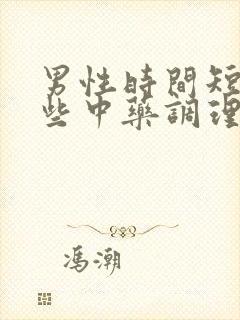 男性時間短
些中藥調理
馮潮